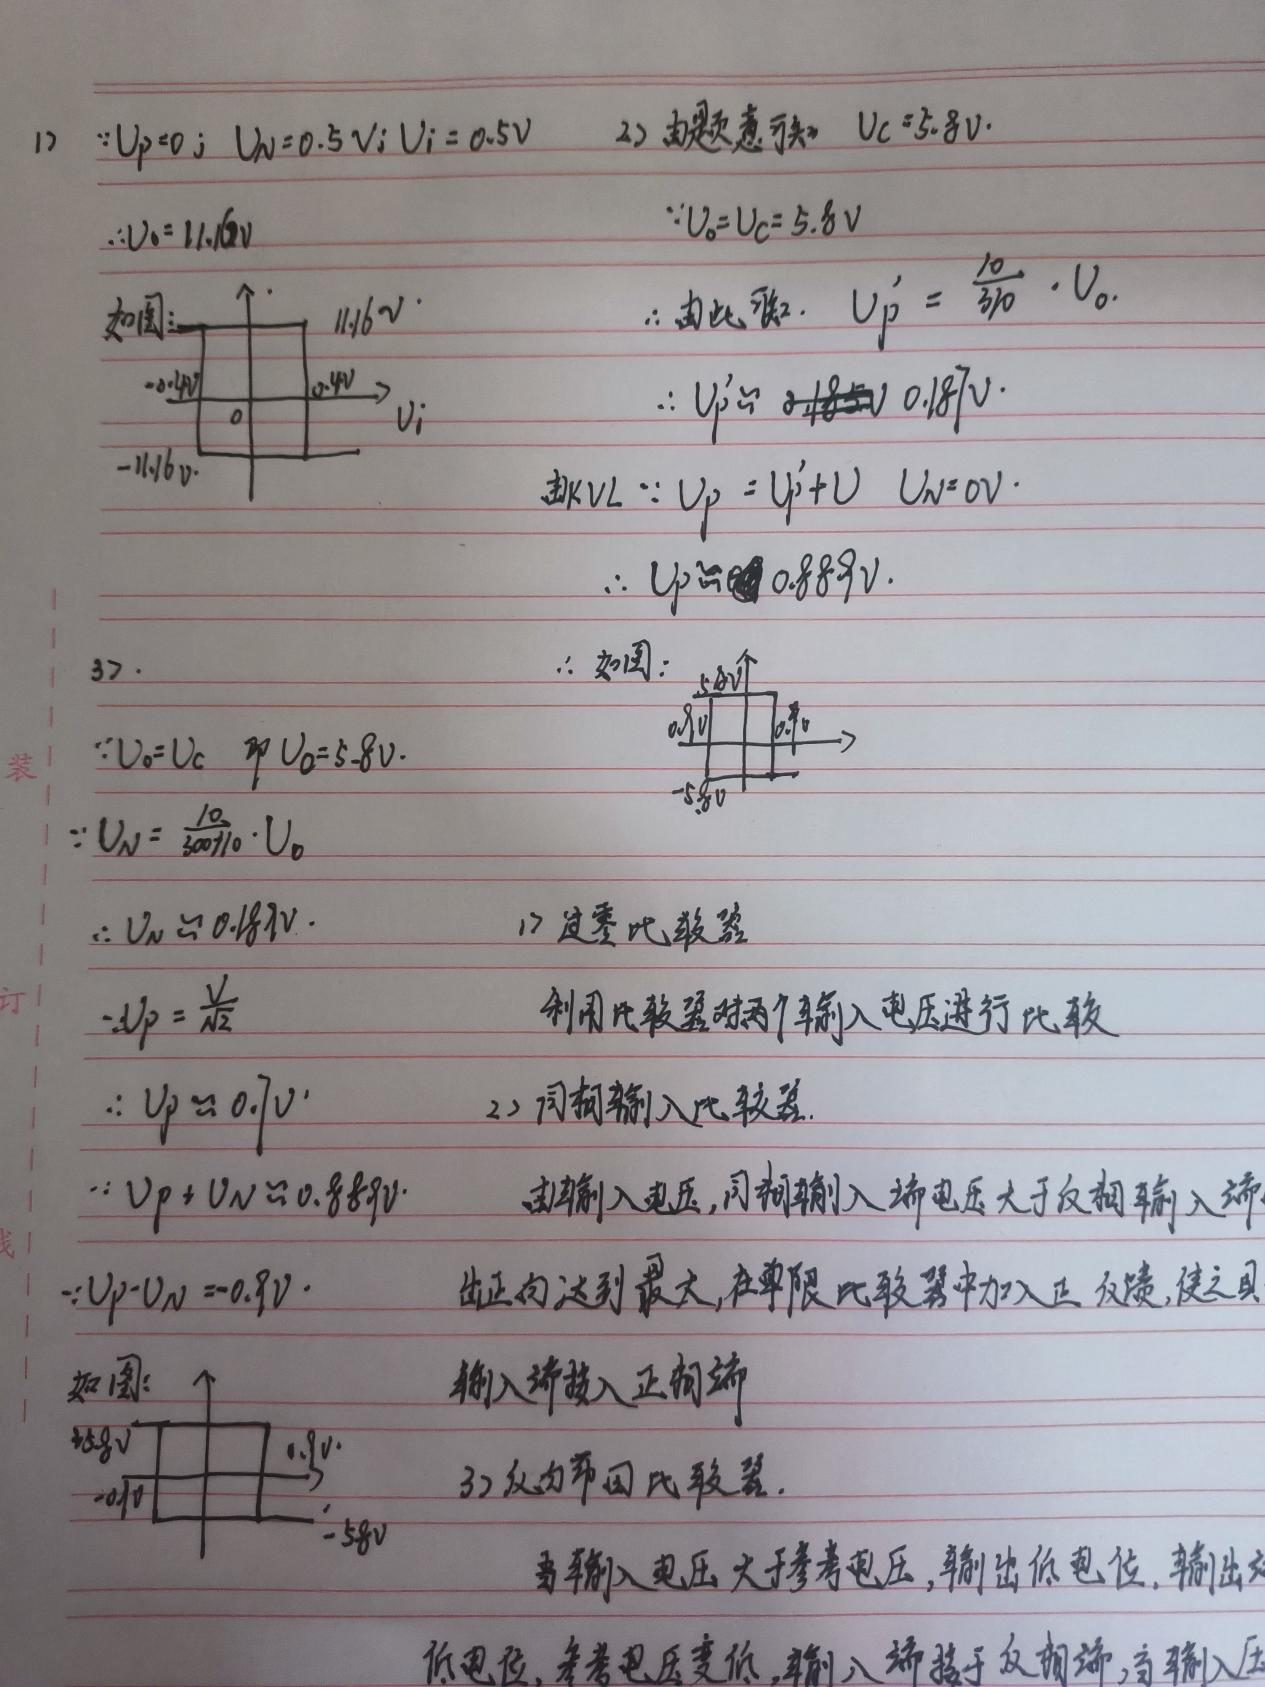 1) ∵Up=0; UN=0.5V; Ui=0.5V
∴Uo=11.16V
如图:
11.16V
-0.4V
0.4V
0
Ui
-11.16V.
2) 由题意可知 UC=5.8V.
∵Uo=UC=5.8V
∴由此可知. Up' = 10/310 · Uo.
∴ Up'≈ 0.187V.
由KVL ∵ Up = Up'+U UN=0V.
∴ Up≈ 0.889V.
∴ 如图:
5.8V
0.9V
0.9V
-5.8V
3).
∵Uo=UC 即 Uo=5.8V.
∵UN = 10/300+10 · Uo
∴ UN≈0.189V.
∵Up = V/√2
∴ Up≈0.7V
∵ Up+UN≈0.889V.
∵Up-UN=-0.9V.
如图:
+5.8V
0.9V.
-0.9V
-5.8V
1) 过零比较器
利用比较器对两个输入电压进行比较
2) 同相输入比较器.
由输入电压,同相输入端电压大于反相输入端
出正向达到最大,在单限比较器中加入正反馈,使之具
输入端接入正相端
3) 反向带回比较器.
当输入电压大于参考电压,输出低电位.输出
低电位,参考电压变低,输入端接于反相端,当输入压
装
订
线